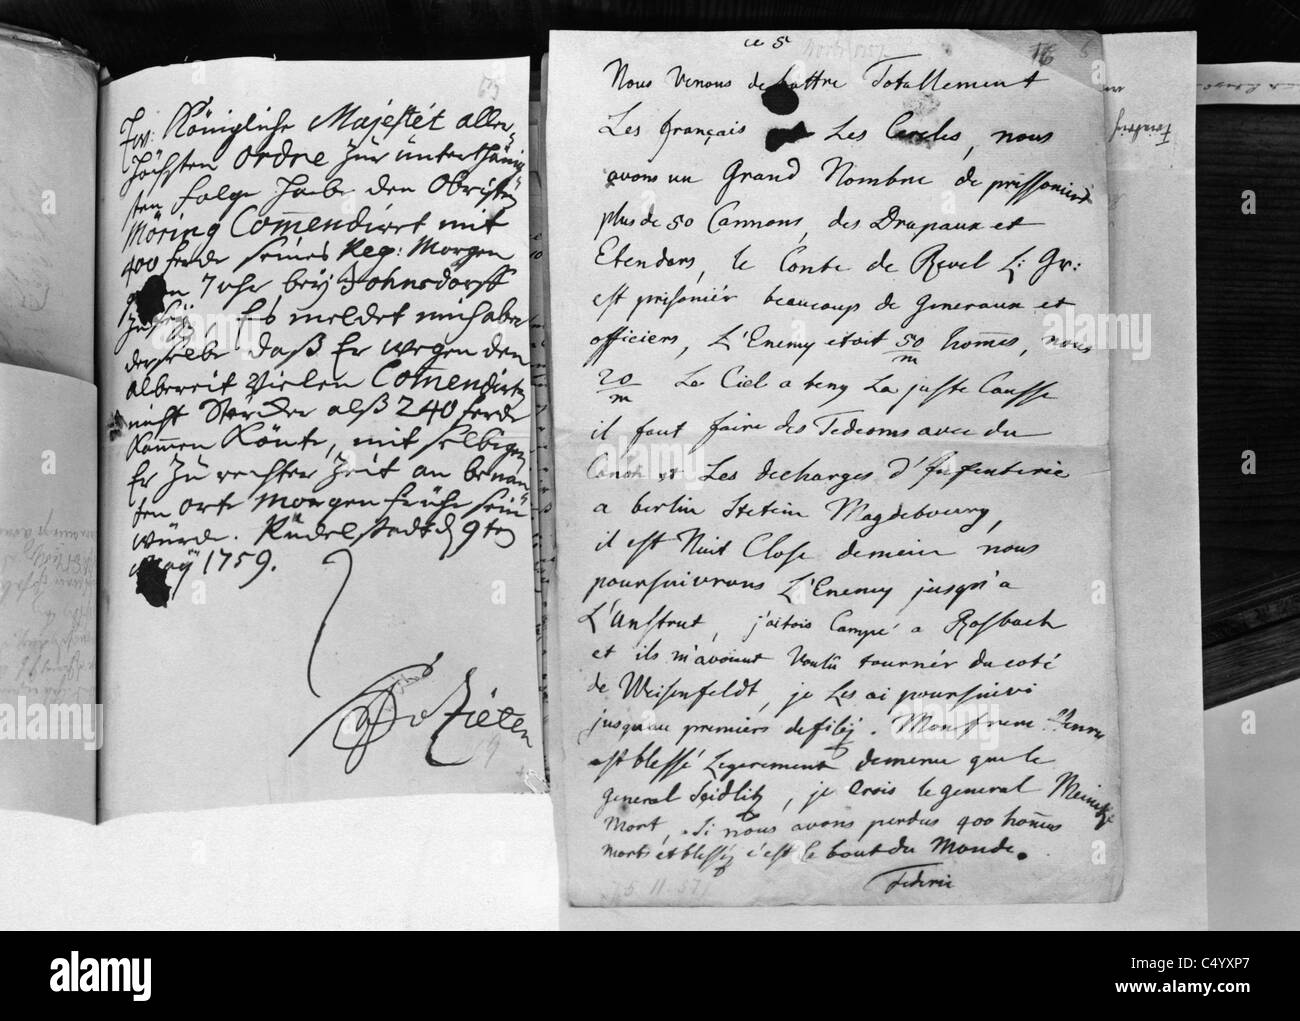 Ew: Königliche Majestét aller-
höchsten Ordre zur unterthänig
sten folge habe den Obristen
Möring Comendirt mit
400 ferde seines Reg: Morgen
7 uhr beÿ Johnsdorff
Es meldet mich aber
derselbe daß Er wegen den
albereit vielen Comendirten
nicht Stärcker alß 240 ferde
kommen könte, mit selbigen
Er zu rechter Zeit an benan
ten orte Morgen frühe sein
würde. Rüdelstadt d 9ten
Maÿ 1759.
v Zieten
ce 5
Nous Venons de battre Totallement
Les français Les Cercles, nous
avons un Grand Nombre de prissoniers
plus de 50 Cannons, des Drapaux et
Etendars, le Conte de Revel L: Gr:
est prisoniér beaucoup de Generaux et
officiers, L'Enemy etoit 50/m homes, nous
20/m Le Ciel a beny La juste Causse
il faut faire des Tedeoms avec du
Canon et Les decharges d'Infenterie
a berlin Stetein Magdebourg,
il est Nuit Close demein nous
poursuivrons L'Enemy jusqu'a
L'Unstrut, j'aitois Campé a Rosbach
et ils m'avoient Voulu tournér du coté
de Weisenfeldt, je Les ai poursuivi
jusqu'au premiers defiléz. Mon frere Henri
est blessé Legerement de meme que le
general Seidlitz, je Crois le general Meinike
Mort, Si nous avons perdus 400 homes
morts et blesséz c'est le bout du Monde.
Federic
5 11 57
alamy
Image ID: C4YXP7
www.alamy.com